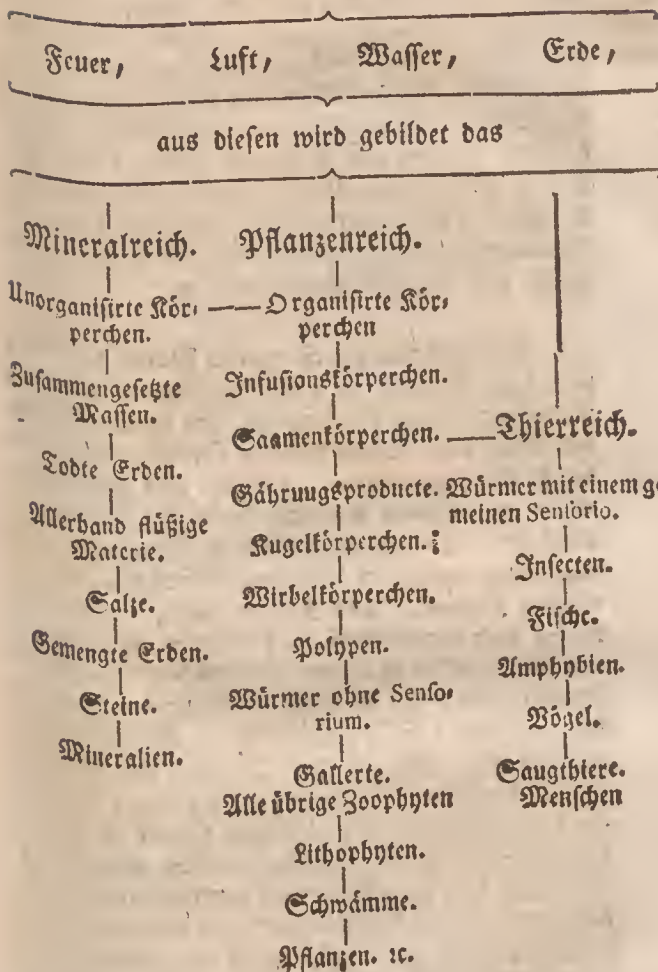 Feuer, Luft, Wasser, Erde,
aus diesen wird gebildet das
Mineralreich.
Unorganisirte Kör-
perchen.
Zusammengesetzte
Massen.
Todte Erden.
Allerhand flüßige
Materie.
Salze.
Gemengte Erden.
Steine.
Mineralien.
Pflanzenreich.
Organisirte Kör-
perchen
Infusionskörperchen.
Saamenkörperchen.
Gähruugsproducte.
Kugelkörperchen.
Wirbelkörperchen.
Polypen.
Würmer ohne Senso-
rium.
Gallerte.
Alle übrige Zoophyten
Lithophyten.
Schwämme.
Pflanzen. ꝛc.
Thierreich.
Würmer mit einem ge
meinen Sensorio.
Insecten.
Fische.
Amphybien.
Vögel.
Saugthiere.
Menschen